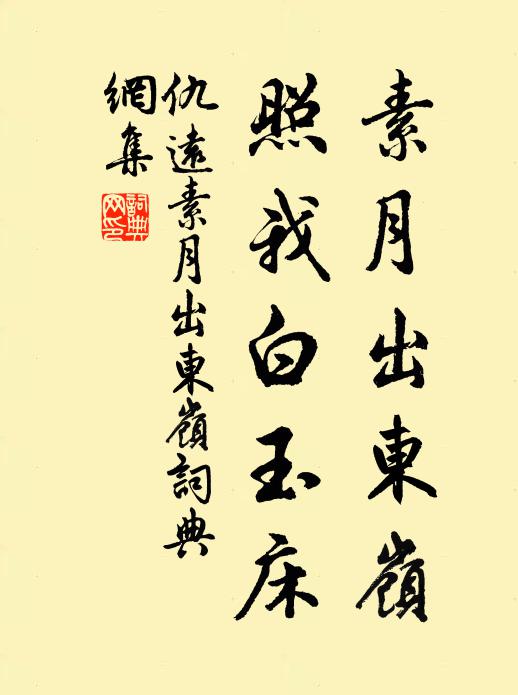 素月出東嶺
照我白玉床
仇遠素月出東嶺詞典
網集
詞典網印